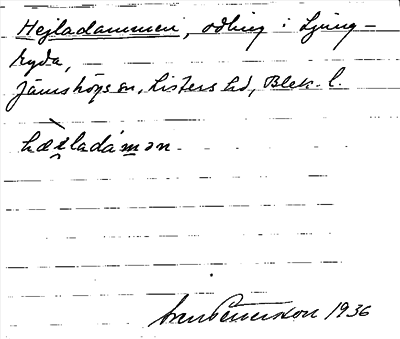 Hejladammen, odling i Ljung-
ryda,
Jämshögs sn, Listers hd, Blek. l.
hæi̯ladámən.
1936